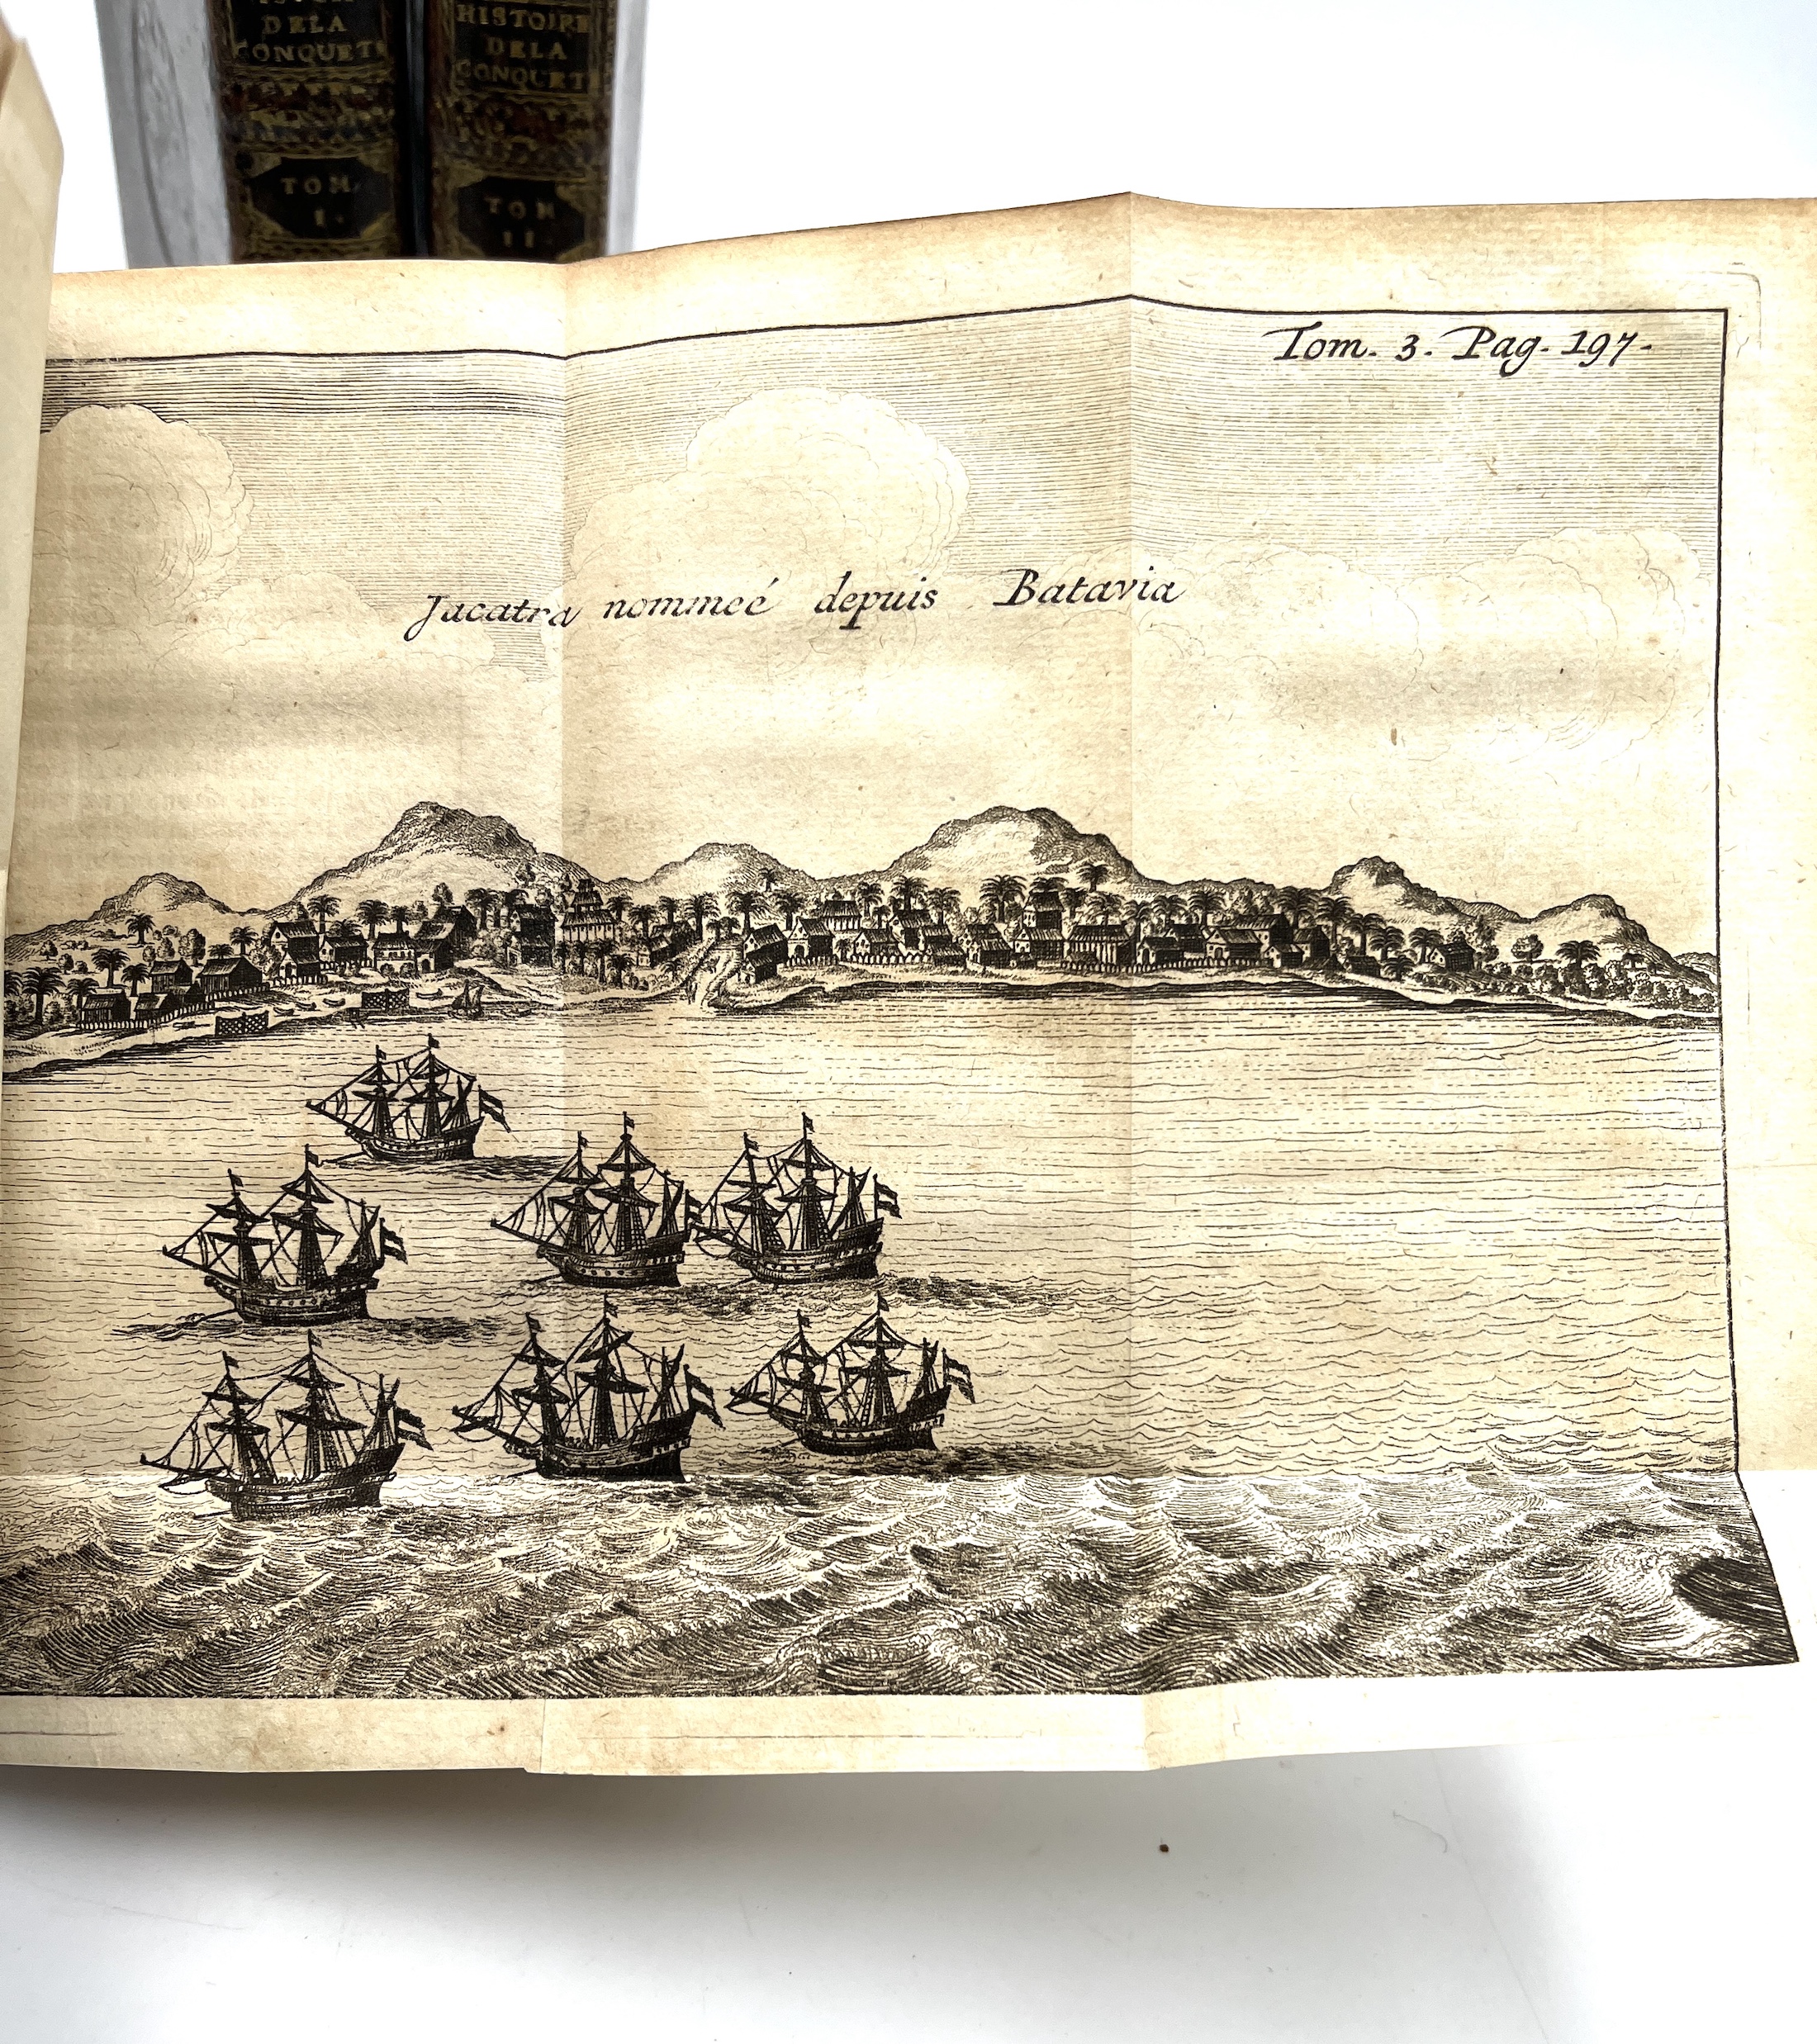 DE LA
CONQUETE
TOM.
I.
HISTOIRE
DE LA
CONQUETE
TOM
II.
Tom. 3. Pag. 197.
Jacatra nommeé depuis Batavia